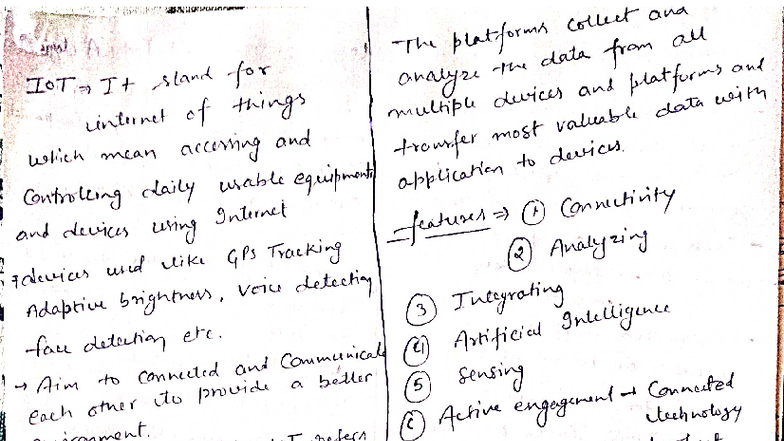 IOT ⇒ It stand for
internet of things
which mean accessing and
Controlling daily usable equipments
and devices using Internet
devices used like GPS Tracking
Adaptive brightness, Voice detection
face detection etc.
→ Aim to Connected and Communicate
each other to provide a better
The platforms Collect and
analyze the data from all
multiple devices and platforms and
transfer most valuable data with
application to devices.
features ⇒ ① Connectivity
② Analyzing
③ Integrating
④ Artificial Intelligence
⑤ Sensing
Active engagement → Connected
technology